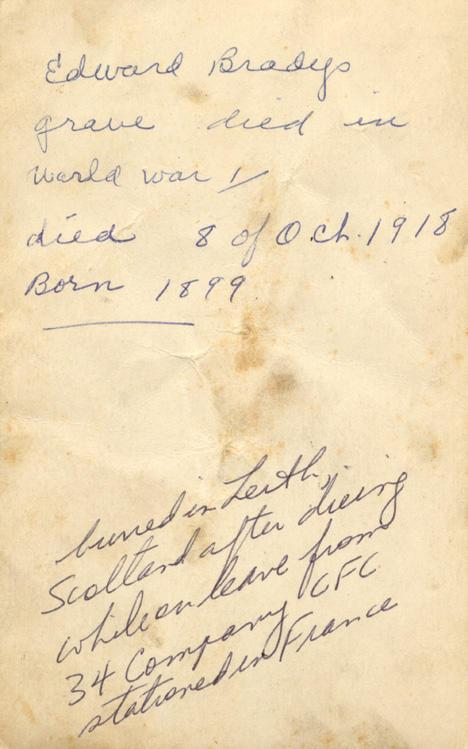 Edward Bradys
grave died in
World war 1
died 8 of Oct. 1918
Born 1899
burried in Leith,
Scottland after dieing
while on leave from
34 Company CFC
stationed in France